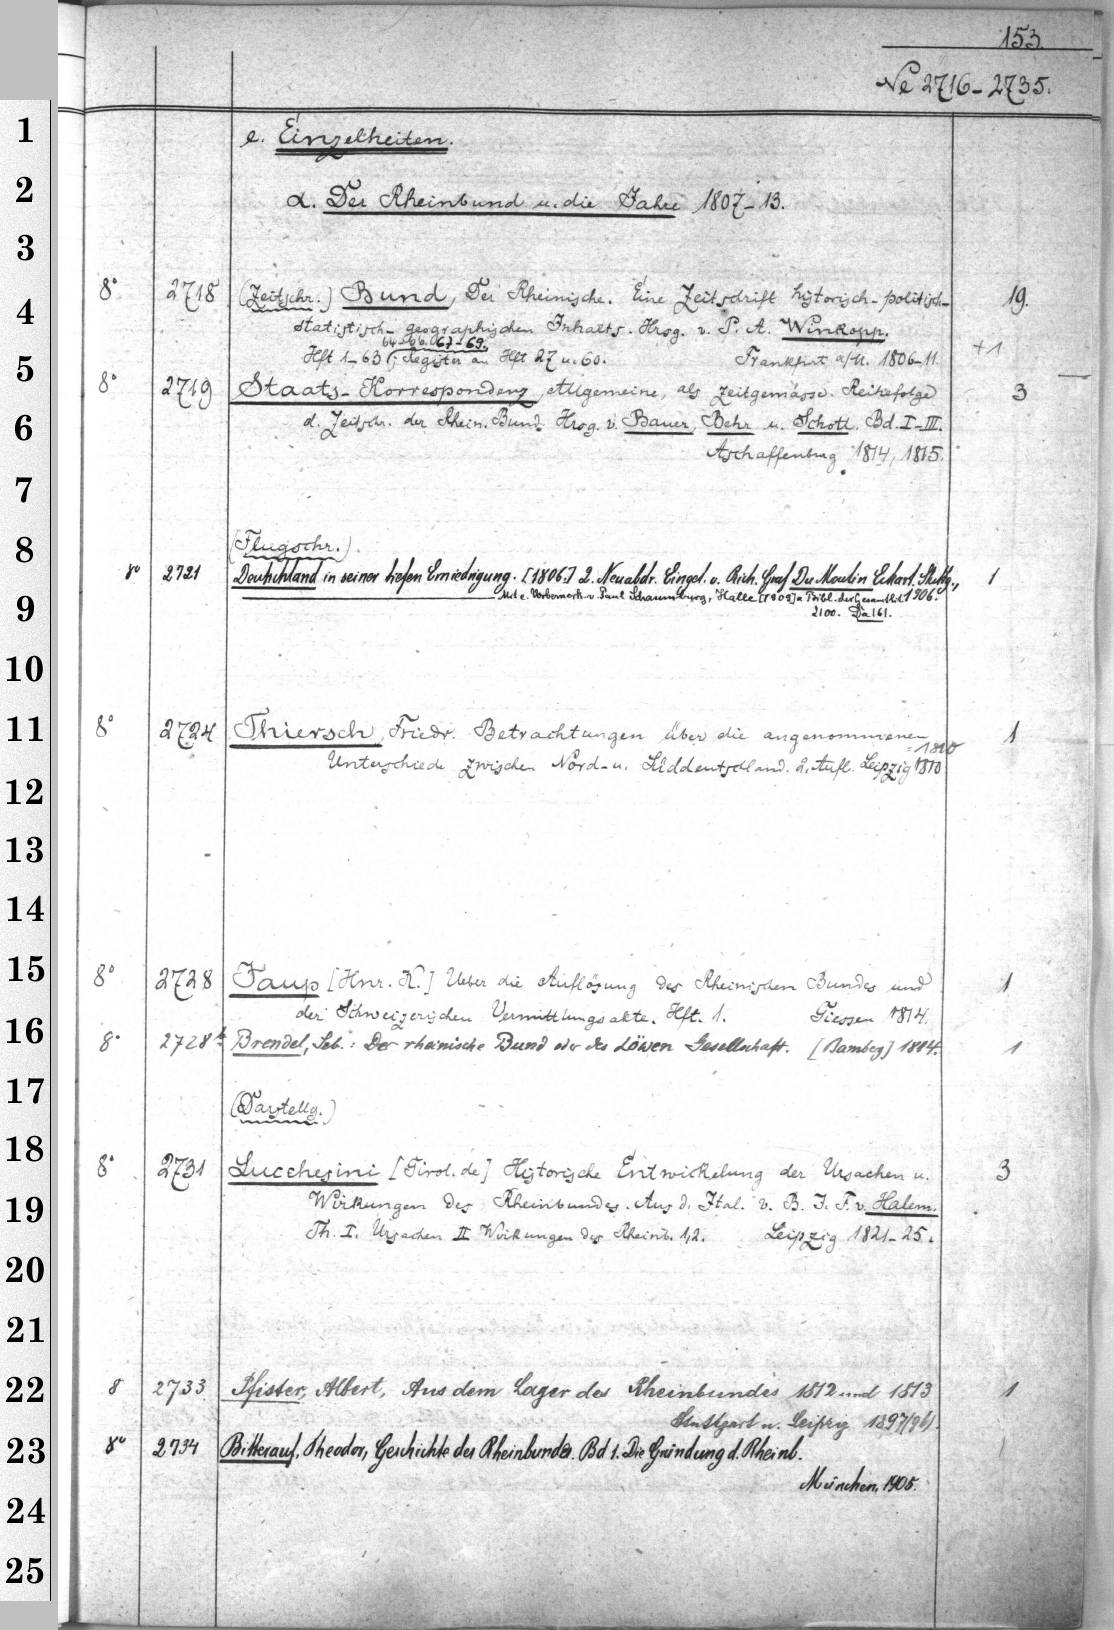 153.
№ 2716-2735.
e. Einzelheiten.
α. Der Rheinbund u. die Jahre 1807-13.
8° 2718 (Zeitschr.) Bund, Der Rheinische. Eine Zeitschrift historisch-politisch- 19.
statistisch-geographischen Inhalts. Hrsg. v. P. A. Winkopp.
64-66. 67-69.
Hft 1-63 (; Register an Hft 27 u. 60. Frankfurt a/M. 1806-11. +1
8° 2719 Staats-Korrespondenz, Allgemeine, als zeitgemässe Reihefolge 3
d. Zeitschr. der Rhein. Bund. Hrsg. v. Bauer, Behr u. Schott. Bd. I-III.
Aschaffenburg 1814, 1815.
(Flugschr.)
8° 2721 Deutschland in seiner tiefen Erniedrigung. [1806.] 2. Neuabdr. Eingel. v. Rich. Graf Du Moulin Eckart. Stuttg., 1
1906.
Mit e. Vorbemerk. v. Paul Schaumburg, Halle [1909] = Bibl. der Gesamtlit.
2100. Da 161.
8° 2724 Thiersch, Friedr. Betrachtungen über die angenommenen 1
= 1810
Unterschiede zwischen Nord- u. Süddeutschland. 2. Aufl. Leipzig 1810
8° 2728 Jaup [Hnr. K.] Ueber die Auflösung des Rheinischen Bundes und 1
der Schweizerischen Vermittlungsakte. Hft. 1. Giessen 1814.
8° 2728 Brendel, Seb.: Der rheinische Bund oder des Löwen Gesellschaft. [Bamberg] 1814. 1
(Darstellg.)
8° 2731 Lucchesini [Girol. de] Historische Entwickelung der Ursachen u. 3
Wirkungen des Rheinbundes. Aus d. Ital. v. B. J. F. v. Halem.
Th. I. Ursachen II Wirkungen des Rheinb. 1,2. Leipzig 1821-25.
8 2733 Pfister, Albert, Aus dem Lager des Rheinbundes 1812 und 1813 1
Stuttgart u. Leipzig 1897 (96).
8° 2734 Bitterauf, Theodor, Geschichte des Rheinbundes. Bd 1. Die Gründung d. Rheinb. 1
München, 1905.
1
2
3
4
5
6
7
8
9
10
11
12
13
14
15
16
17
18
19
20
21
22
23
24
25